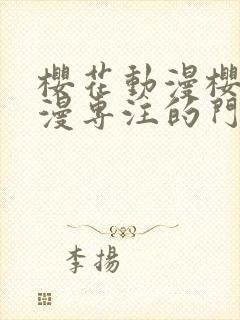 櫻花動漫櫻
漫專注的門
李揚